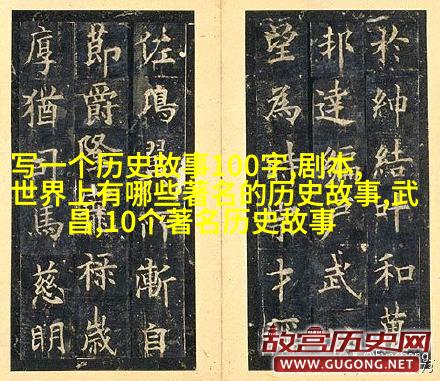 於紳結叶和
邦達武
望為才
佐鳴漸自
節爵隆禄歳
厚猶司馬慈明
写一个历史故事100字,剧本,
世界上有哪些著名的历史故事,武
昌,10个著名历史故事
故宫历史网
WWW.GUGONG.NET